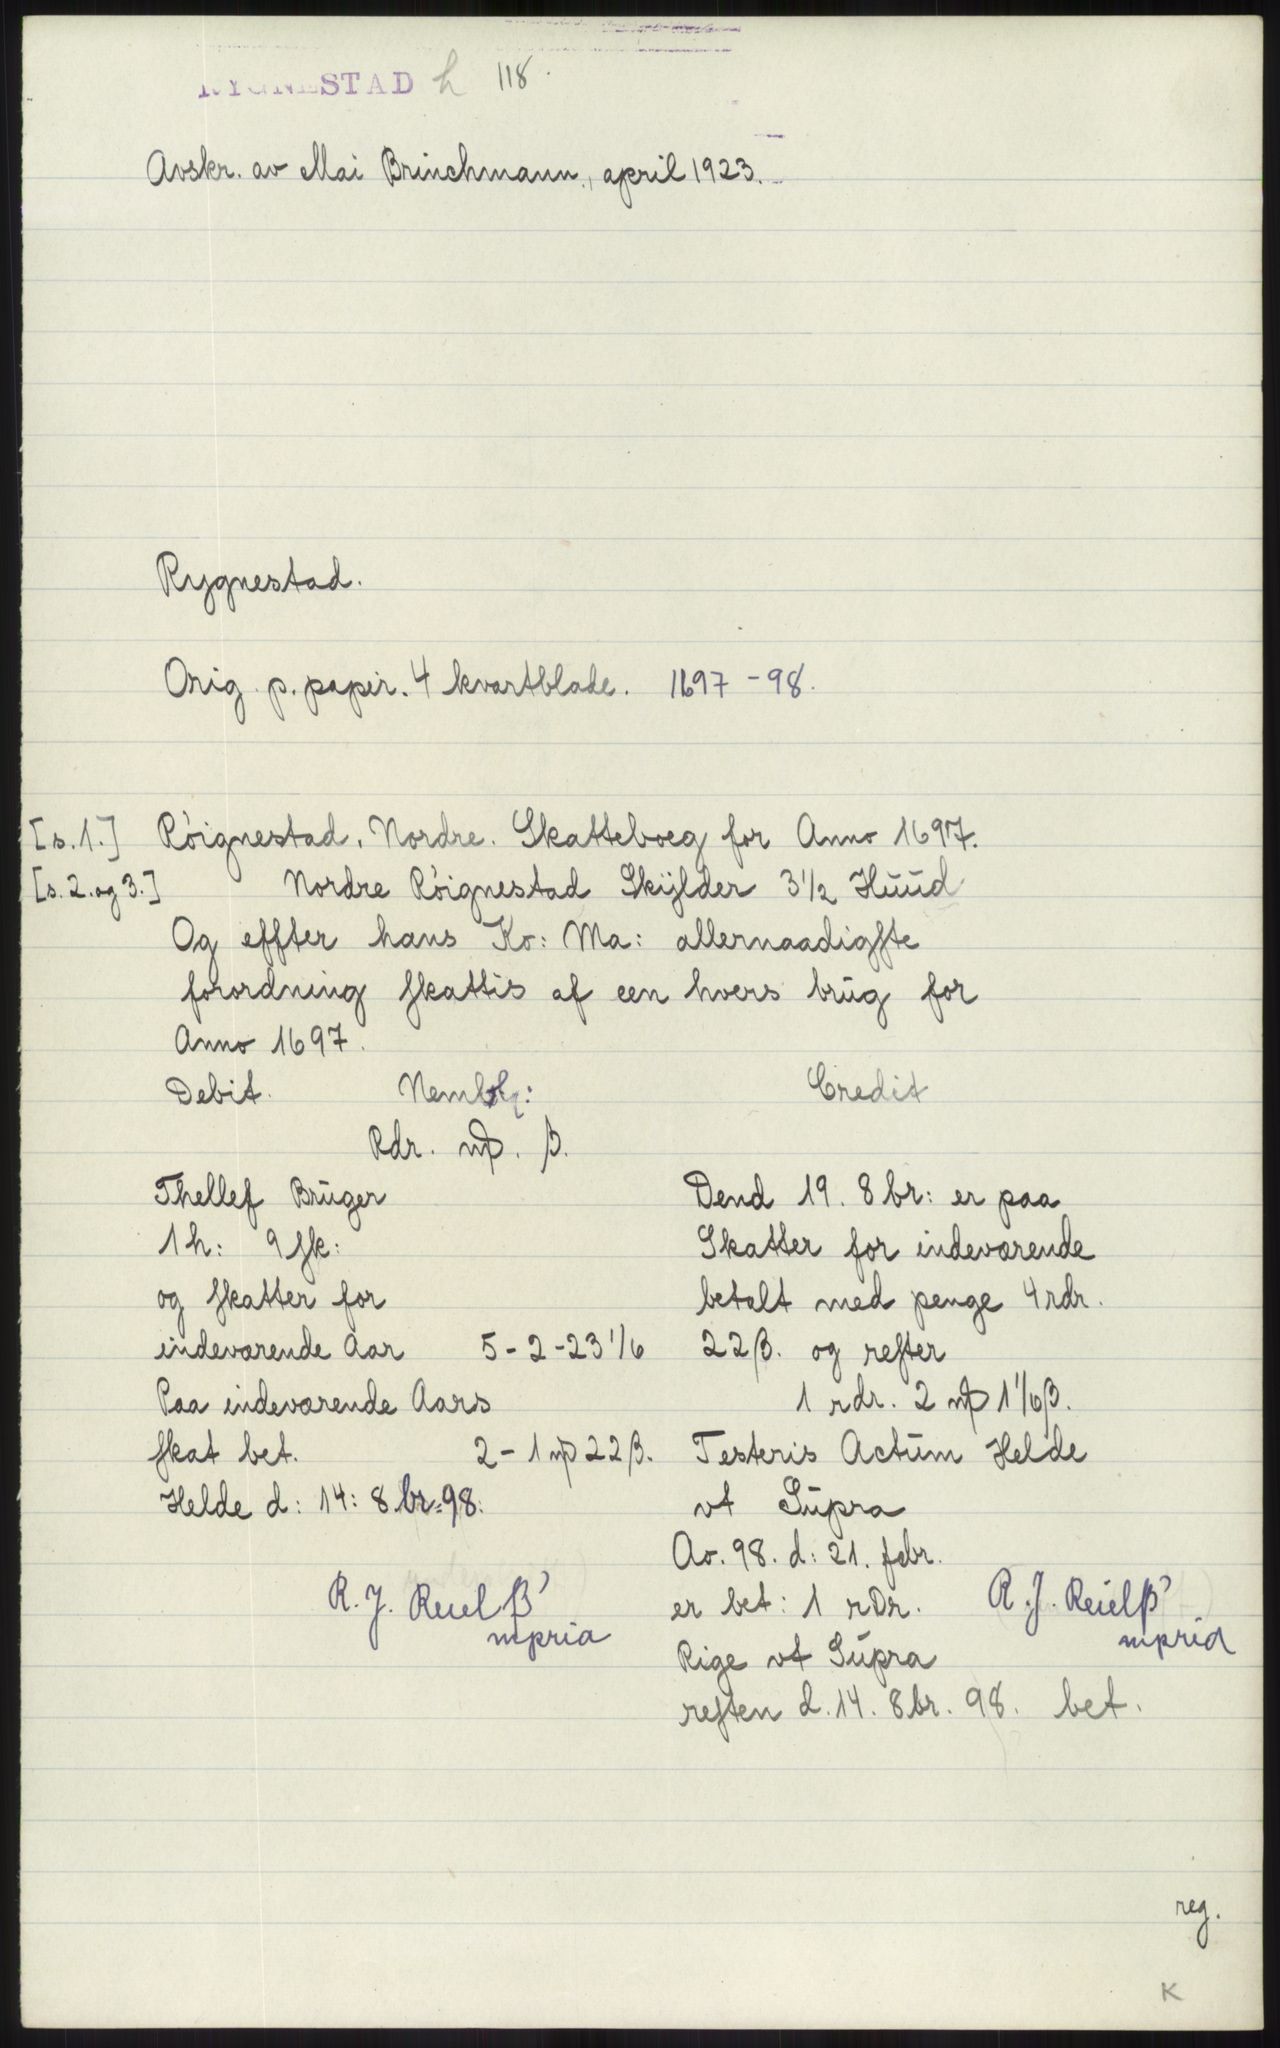 RYGNESTAD h 118.
Avskr. av Mai Brinchmann, april 1923.
Rygnestad.
Orig. p. papir. 4 kvartblade. 1697-98.
[s. 1.] Röignestad, Nordre. Skatteboeg for Anno 1697.
[s. 2. og 3.] Nordre Röignestad Skÿlder 3 1/2 Hŭŭd
Og effter hans Ko: Ma: allernaadigste
forordning skattis af een hvers brŭg for
Anno 1697.
Debit.
Rdr. mþ. β.
Thellef Brŭger
1 h: 9 sk:
og skatter for
indeværende Aar 5-2-23 1/6
Paa indeværende Aars
skat bet. 2-1 mþ 22β.
Helde d: 14: 8br: 98:
R. J. Reielβ'
mpria
Credit
Dend 19. 8br: er paa
Skatter for indeværende
betalt med penge 4 rdr.
22β. og rester
1 rdr. 2 mþ 1 1/6β.
Testeris Actŭm Helde
vt Sŭpra
Ao. 98. d: 21. febr.
er bet: 1 rDr.
Rige vt Sŭpra
resten d. 14. 8br. 98. bet.
R. J. Reielβ'
mpria
reg.
K